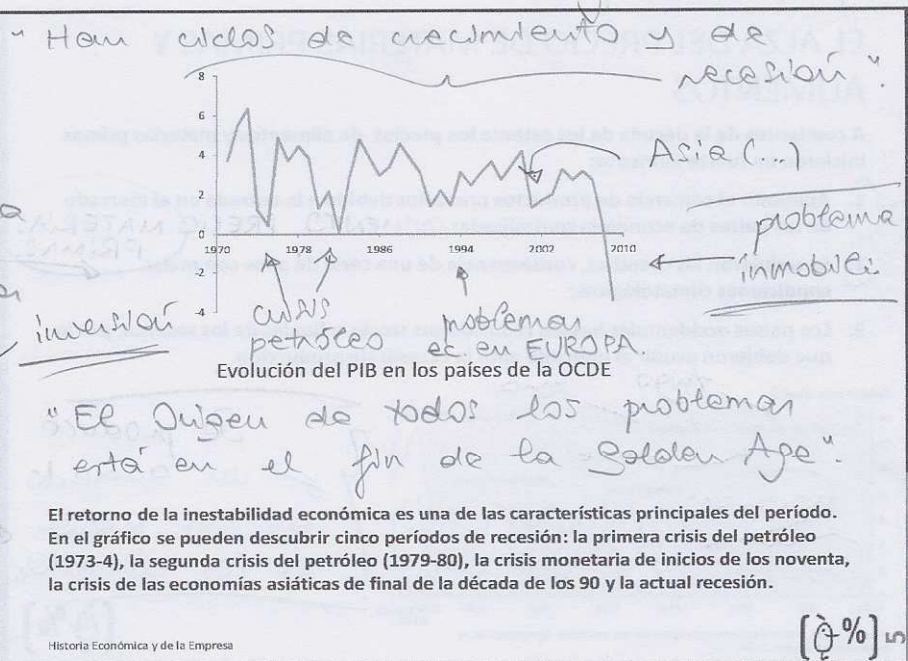 "Hay ciclos de crecimiento y de
recesión".
8
6
4
2
0
-2
-4
1970 1978 1986 1994 2002 2010
Asia (...)
problema
inmobili.
inversión
crisis
petróleo
problemas
et en EUROPA
Evolución del PIB en los países de la OCDE
"El Origen de todos los problemas
está en el fin de la Golden Age".
El retorno de la inestabilidad económica es una de las características principales del período.
En el gráfico se pueden descubrir cinco períodos de recesión: la primera crisis del petróleo
(1973-4), la segunda crisis del petróleo (1979-80), la crisis monetaria de inicios de los noventa,
la crisis de las economías asiáticas de final de la década de los 90 y la actual recesión.
Historia Económica y de la Empresa
5